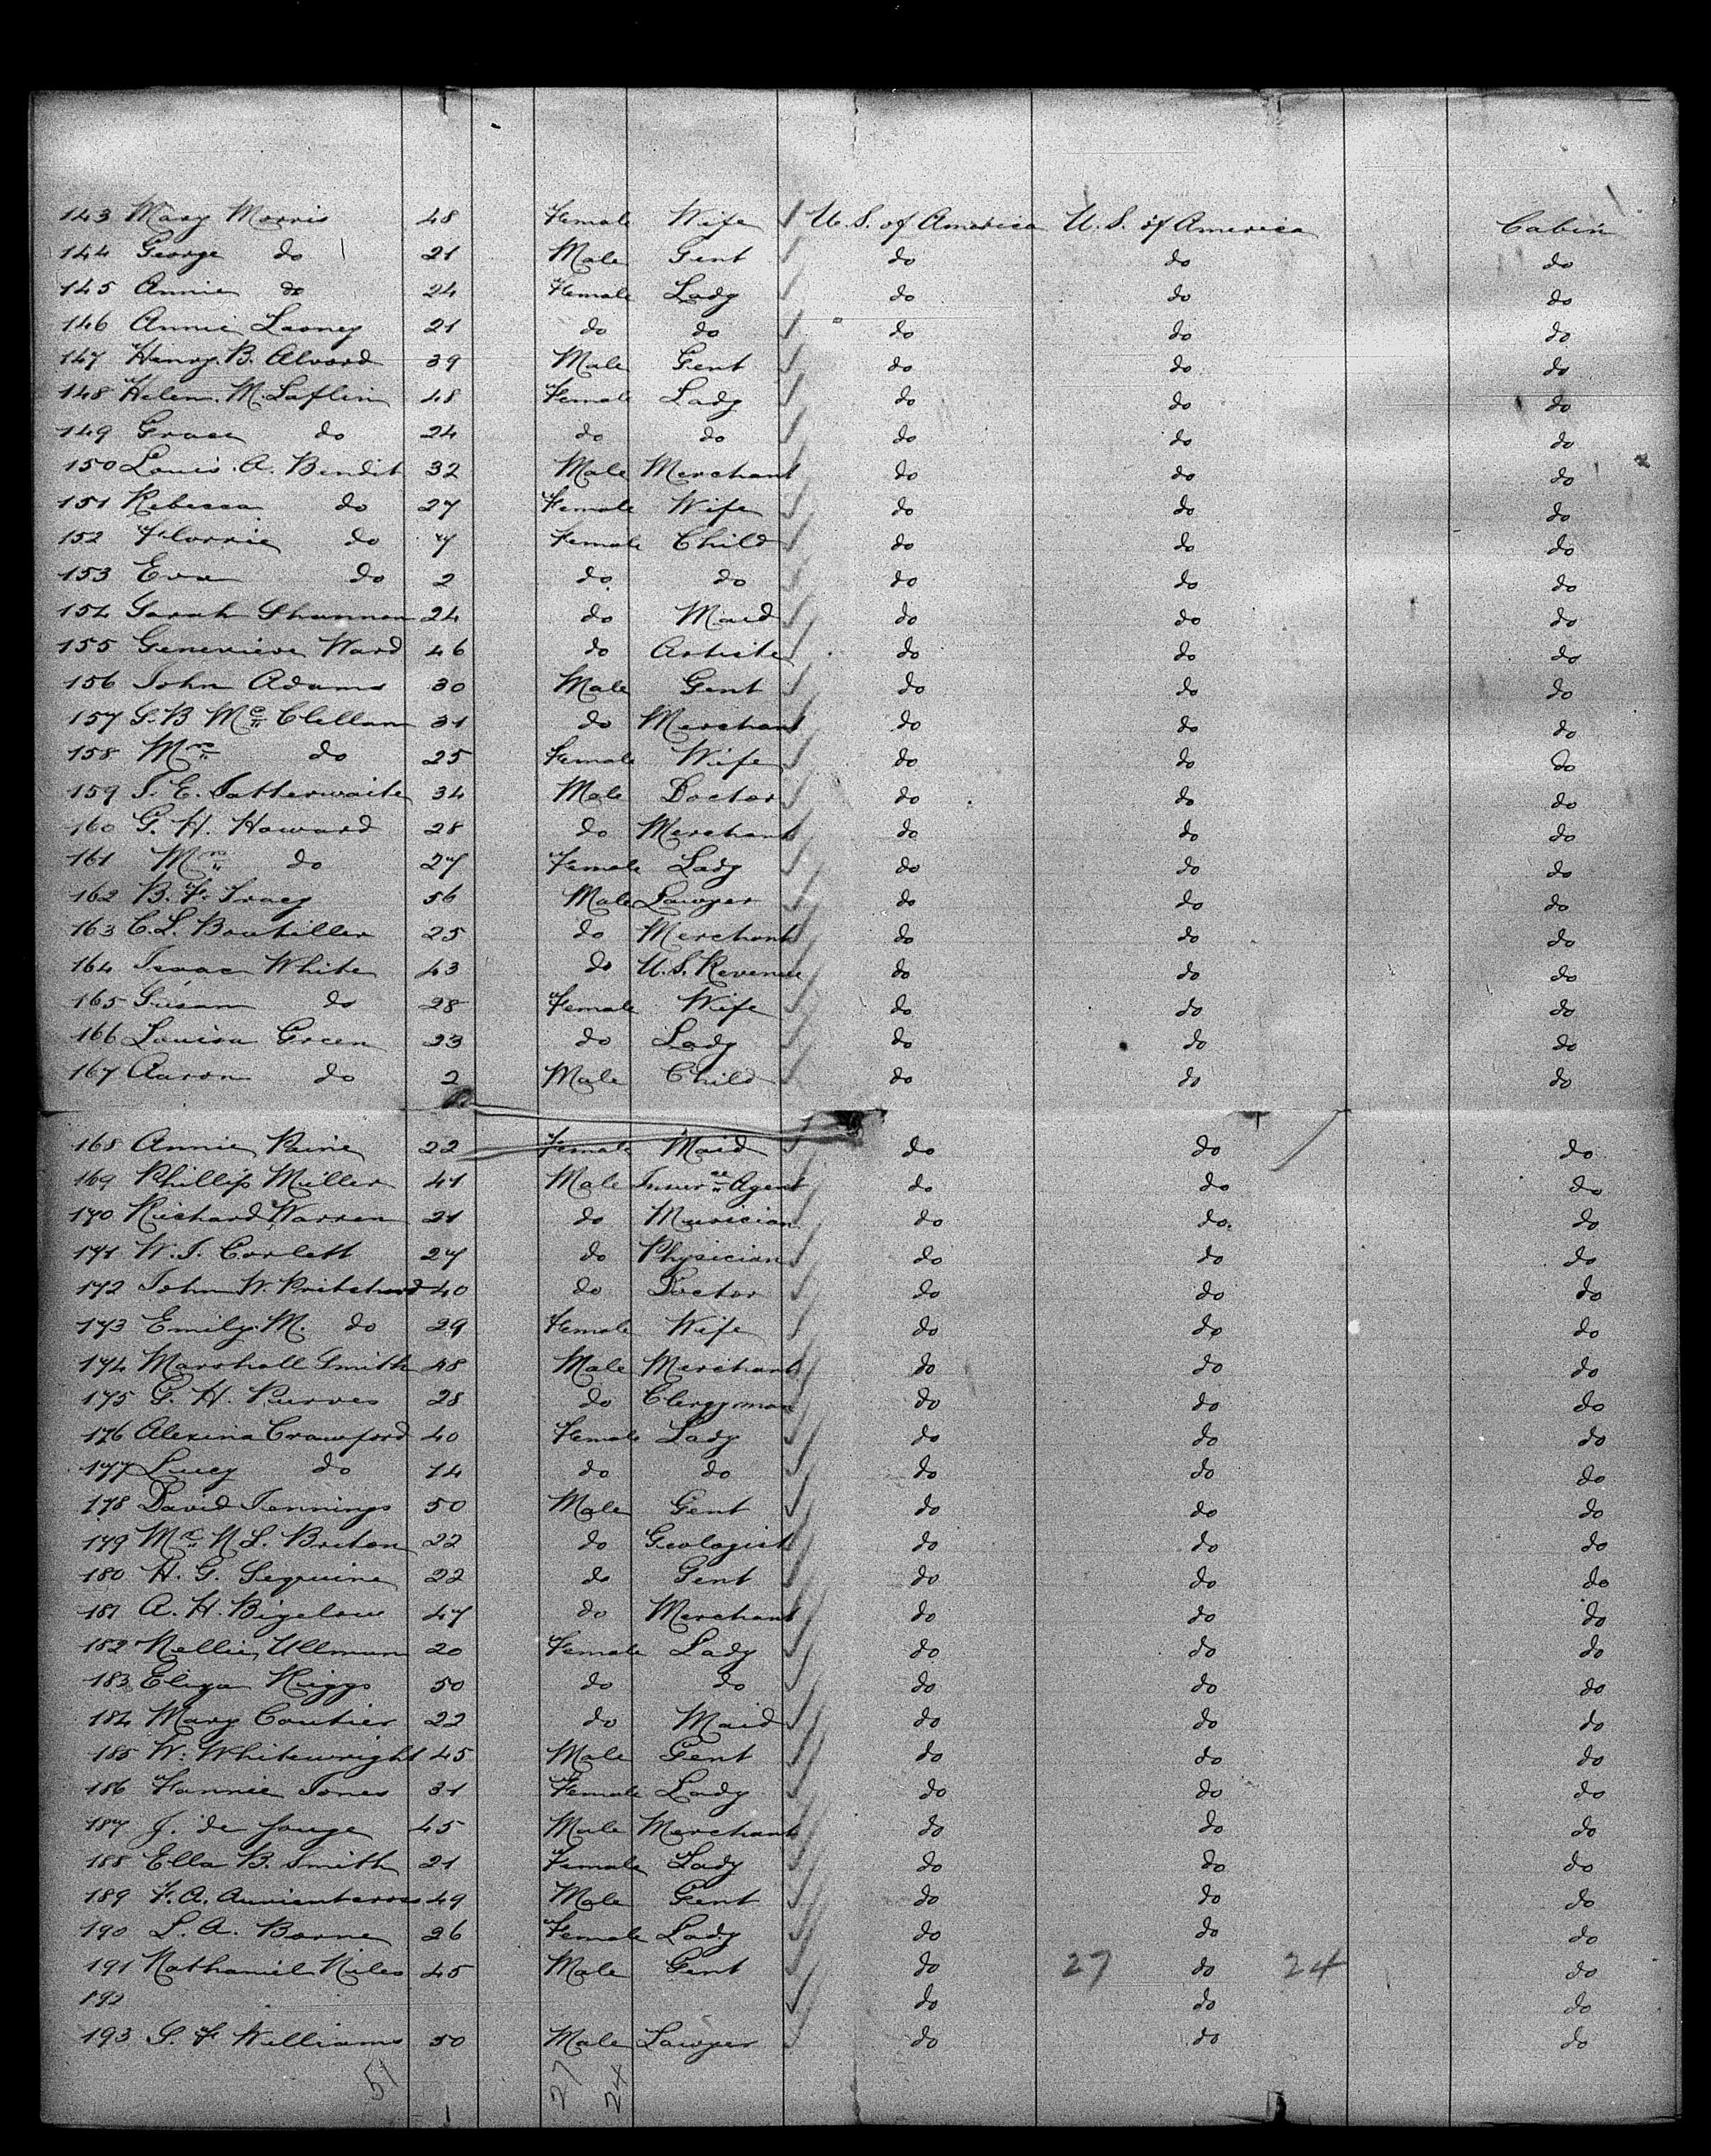 143 Mary Morris 48 Female Wife U.S. of America U.S. of America Cabin
144 George do 21 Male Gent do do do
145 Annie do 24 Female Lady do do do
146 Annie Looney 21 do do do do do
147 Henry B. Alvord 39 Male Gent do do do
148 Helen M. Laflin 48 Female Lady do do do
149 Grace do 24 do do do do do
150 Louis A. Bendit 32 Male Merchant do do do
151 Rebecca do 27 Female Wife do do do
152 Florrie do 7 Female Child do do do
153 Eva do 2 do do do do do
154 Sarah Shannon 24 do Maid do do do
155 Genevieve Ward 46 do Artiste do do do
156 John Adams 30 Male Gent do do do
157 G. B Mc Clellan 31 do Merchant do do do
158 Mrs do 25 Female Wife do do do
159 T. E. Satterwaite 34 Male Doctor do do do
160 G. H. Howard 28 do Merchant do do do
161 Mrs do 27 Female Lady do do do
162 B. F. Tracy 56 Male Lawyer do do do
163 C. L. Boutiller 25 do Merchant do do do
164 Isaac White 43 do U.S. Revenue do do do
165 Susan do 28 Female Wife do do do
166 Louisa Green 23 do Lady do do do
167 Aaron do 2 Male Child do do do
168 Annie Paine 22 Female Maid do do do
169 Phillip Miller 41 Male Agent do do do
170 Richard Warren 21 do Musician do do do
171 W. T. Corlett 27 do Physician do do do
172 John W. Pritchard 40 do Doctor do do do
173 Emily M. do 29 Female Wife do do do
174 Marshall Smith 48 Male Merchant do do do
175 G. H. Purves 28 do Clergyman do do do
176 Alexina Crawford 40 Female Lady do do do
177 Lucy do 14 do do do do do
178 David Jennings 50 Male Gent do do do
179 Mr N L. Breton 22 do Geologist do do do
180 H. G. Seguine 22 do Gent do do do
181 A. H. Bigelow 47 do Merchant do do do
182 Nellie Ullman 20 Female Lady do do do
183 Eliza Higgs 50 do do do do do
184 Mary Coutier 22 do Maid do do do
185 W. Whitewright 45 Male Gent do do do
186 Fannie Jones 31 Female Lady do do do
187 J. de Jonge 45 Male Merchant do do do
188 Ella B. Smith 21 Female Lady do do do
189 F. A. 49 Male Gent do do do
190 L. A. Borne 26 Female Lady do do do
191 Nathaniel Niles 45 Male Gent do 27 do 24 do
192 do do do
193 S. F Williams 50 Male Lawyer do do do
51 27 24